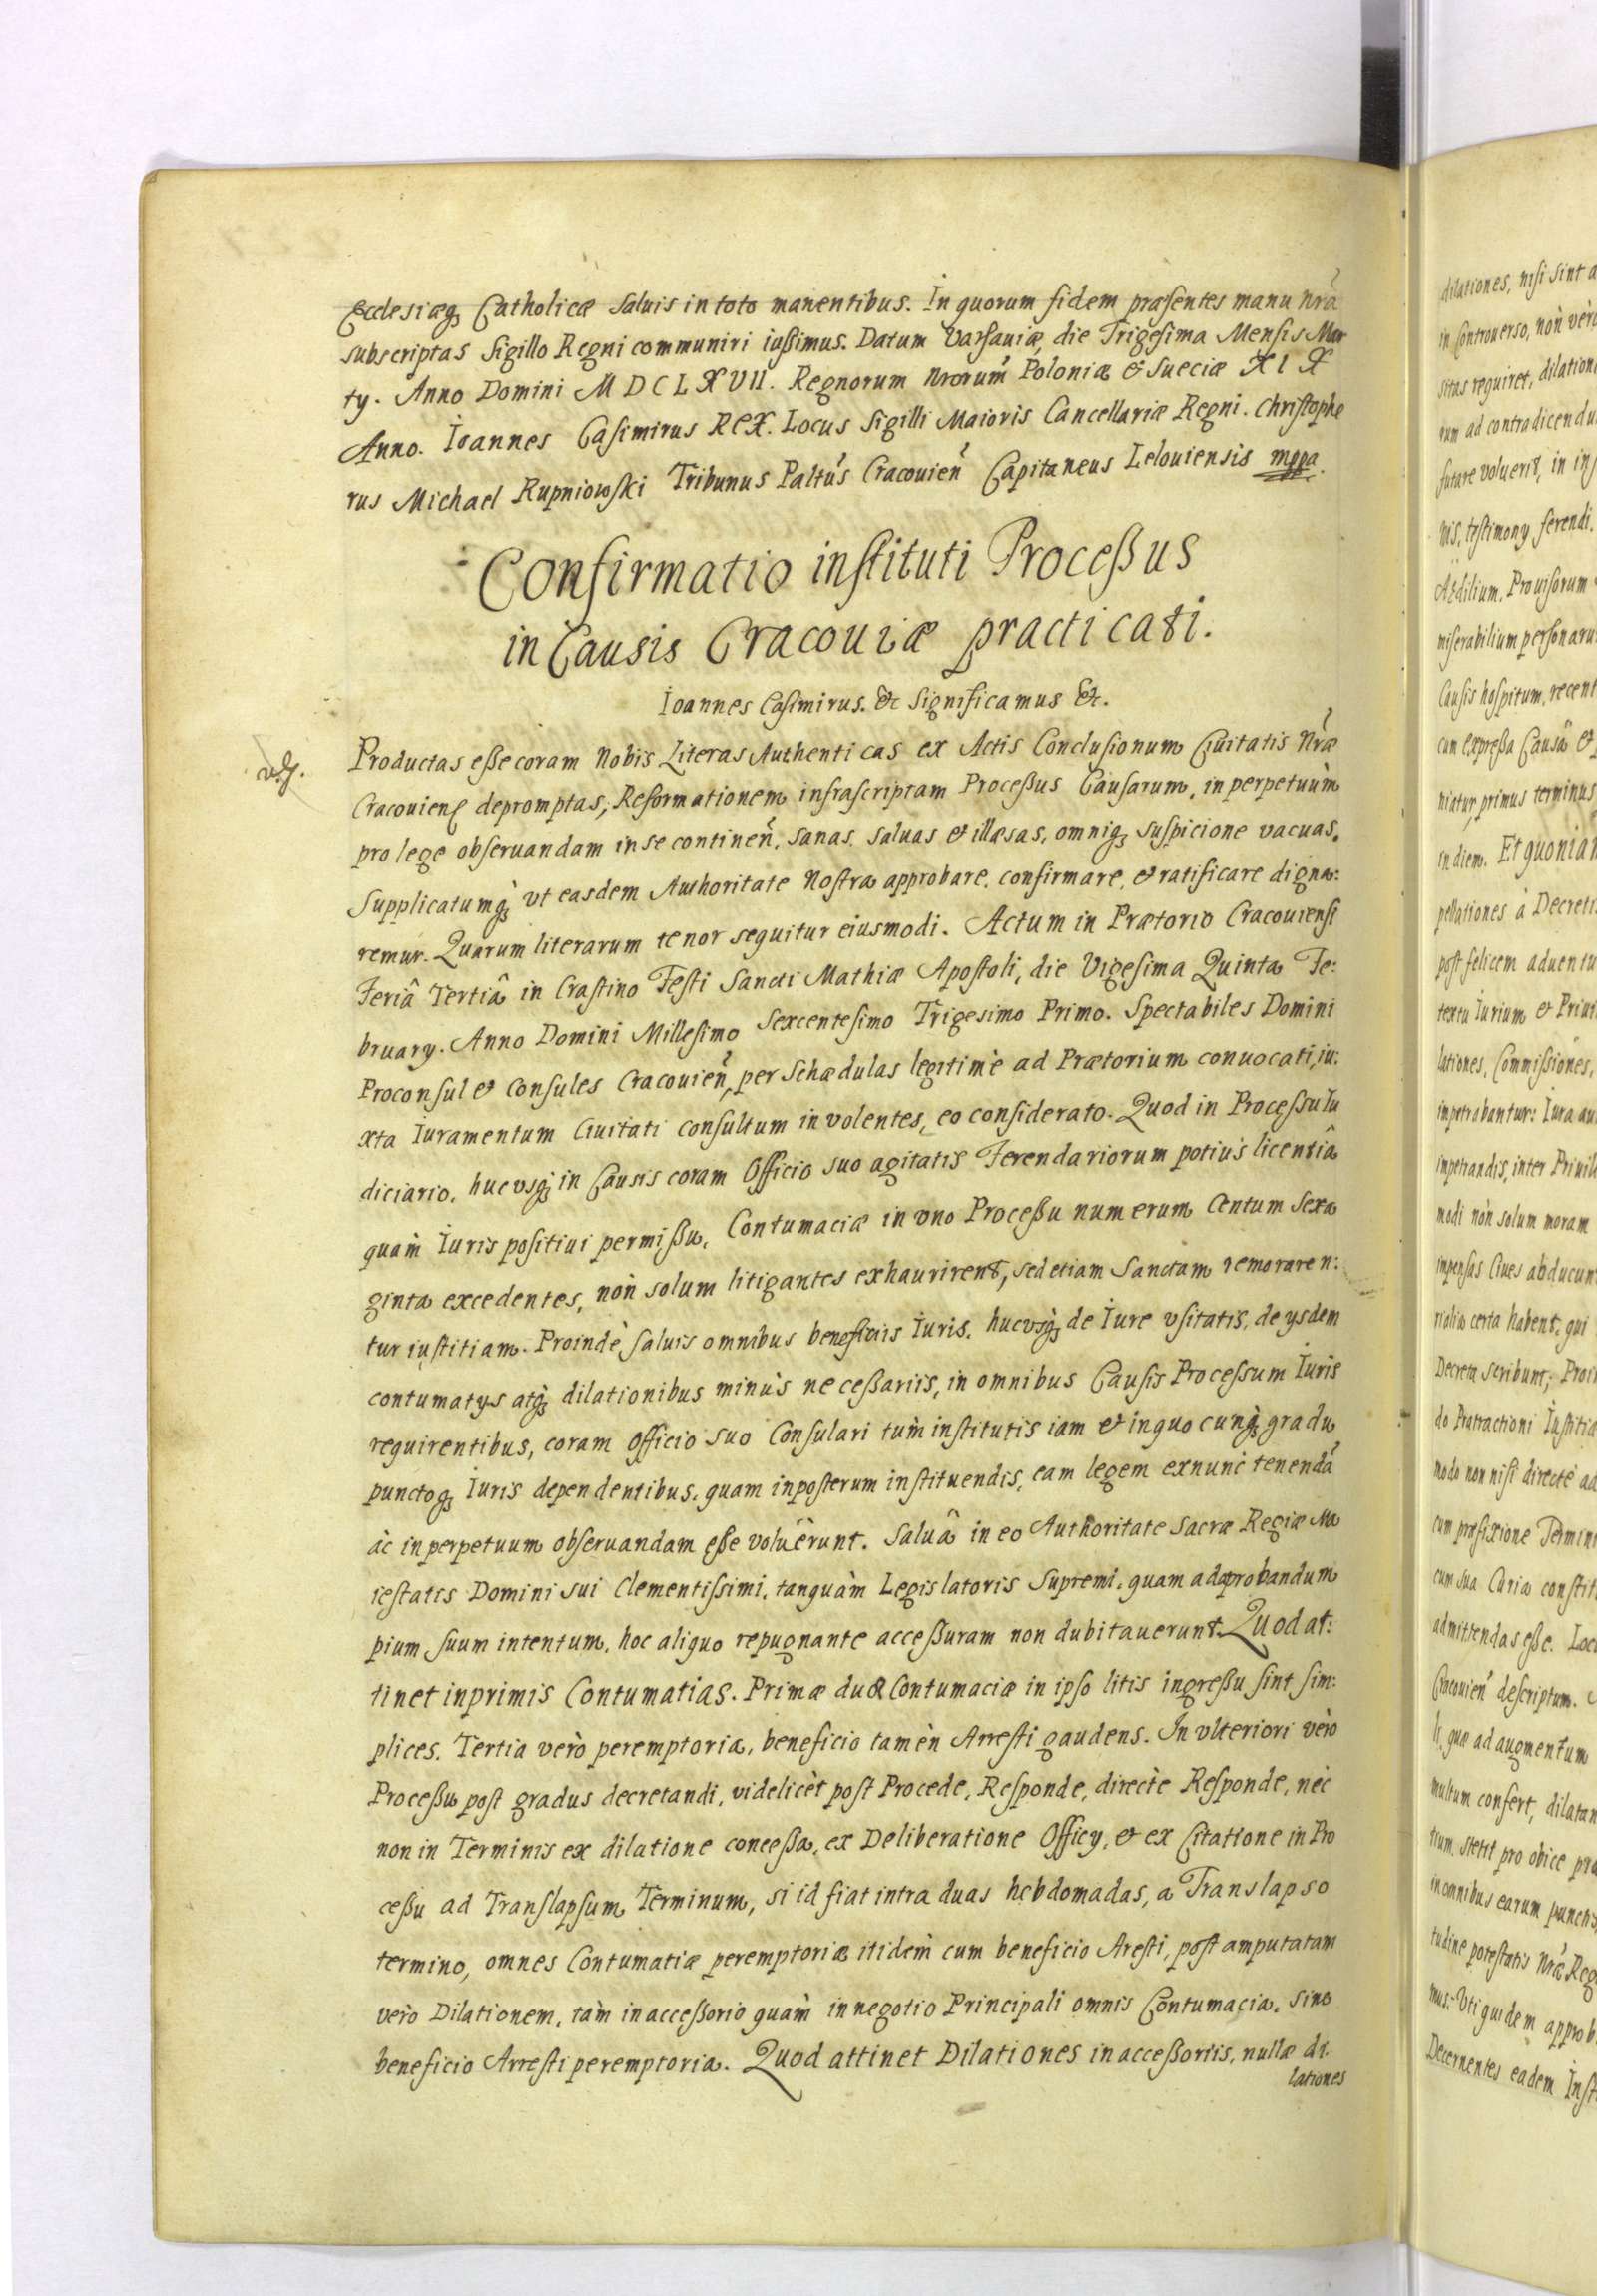 Ecclesiæq; Catholicæ saluis in toto manentibus. In quorum fidem præsentes manu nrã
subscriptas Sigillo Regni communiri iußimus. Datum Varsauiæ, die Trigesima Mensis Mar
ty. Anno Domini MDCLXVII. Regnorum nrorum Poloniæ & Sueciæ XIX
Anno. Ioannes Casimirus Rex. Locus Sigilli Maioris Cancellariæ Regni. Christopho
rus Michael Rupniowski Tribunus Paltũs Cracouień Capitaneus Lelouiensis mppa.
Confirmatio instituti Proceßus
in Causis Cracouiæ practicati.
Ioannes Casimirus. &c Significamus &c.
Productas eße coram Nobis Literas Authenticas ex Actis Conclusionum Ciuitatis Nræ
Cracouień depromptas, Reformationem infrascriptam Proceßus Causarum, in perpetuùm
pro lege obseruandam in se contineñ, sanas, saluas et illæsas, omniq; suspicione vacuas.
Supplicatumq; vt easdem Authoritate Nostra approbare, confirmare, et ratificare digna:
remur. Quarum literarum tenor sequitur eiusmodi. Actum in Prætorio Cracouiensi
Feriâ Tertiâ in Crastino Festi Sancti Mathiæ Apostoli, die Vigesima Quinta Fe:
bruary. Anno Domini Millesimo Sexcentesimo Trigesimo Primo. Spectabiles Domini
Proconsul et Consules Cracouień, per Schædulas legitimè ad Prætorium conuocati, iu:
xta Iuramentum Ciuitati consultum in volentes, eo considerato. Quod in Processu Iu
diciario, hucvsq; in Causis coram Officio suo agitatis Ferendariorum potiùs licentiâ
quàm Iuris positiui permißu, Contumaciæ in vno Proceßu numerum Centum Sexa
ginta excedentes, nòn solum litigantes exhaurirent, sed etiam Sanctam remoraren:
tur iustitiam. Proindè saluis omnibus beneficiis Iuris, hucvsq; de Iure vsitatis, de ysdem
contumatys atq; dilationibus minùs neceßariis, in omnibus Causis Processum Iuris
requirentibus, coram Officio suo Consulari tùm institutis iam et in quocunq; gradu
punctoq; Iuris dependentibus, quam inposterum instituendis, eam legem exnunc tenendã
àc in perpetuum obseruandam eße voluêrunt. Saluâ in eo Authoritate Sacræ Regiæ Ma
iestatis Domini sui Clementissimi, tanquàm Legislatoris Supremi, quam ad aprobandum
pium suum intentum, hoc aliquo repugnante acceßuram non dubitauerunt. Quod at:
tinet inprimis Contumatias. Primæ duæ Contumaciæ in ipso litis ingreßu sint sim:
plices. Tertia verò peremptoria, beneficio tamèn Arresti gaudens. In vlteriori verò
Proceßu post gradus decretandi, videlicèt post Procede, Responde, directè Responde, nèc
non in Terminis ex dilatione conceßa, ex Deliberatione Officy, et ex Citatione in Pro
ceßu ad Translapsum Terminum, si id fiat intra duas hebdomadas, a Translapso
termino, omnes Contumatiæ peremptoriæ itidèm cum beneficio Aresti, post amputatam
verò Dilationem, tàm in acceßorio quàm in negotio Principali omnis Contumacia, sine
beneficio Arresti peremptoria. Quod attinet Dilationes in acceßoriis, nullæ di
lationes
dilationes, nisi sint a
in Controuerso, nòn verò
sitas requiret, dilation
rum ad contradicendu
futare voluerit, in in
nis, testimony ferendi.
Ædilium, Prouisorum
miserabilium personaru
Causis hospitum, recent
cum expreßa Causâ et
niatur, primus terminus
in diem. Et quoniam
pellationes à Decreti
post felicem aduentu
textu Iurium et Priui
lationes, Commissiones,
impetrabantur: Iura au
impetrandis, inter Priuil
modi nòn solum moram
impensas Ciues abducun
rialia certa habent, qui
Decreta scribunt, Proi
do Protractioni Iustitiæ
modo non nisi directè ad
cum præfixione Termini
cum sua Curia constit
admittendas eße. Loc
Cracouień descriptum.
li, quæ ad augmentum
multum confert, dilatan
tium, stetit pro obice pra
in omnibus earum punctis
tudine potestatis Nræ Reg
mus: Uti quidem approb
Decernentes eadem Inst